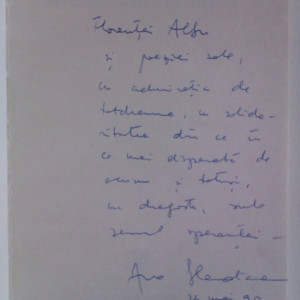 Florenței Albu
și poeziei sale,
cu admirația de
totdeauna, cu solida-
ritatea din ce în
ce mai disperată de
acum și totuși,
cu dragoste, sub
semnul speranței –
Ana Blandiana